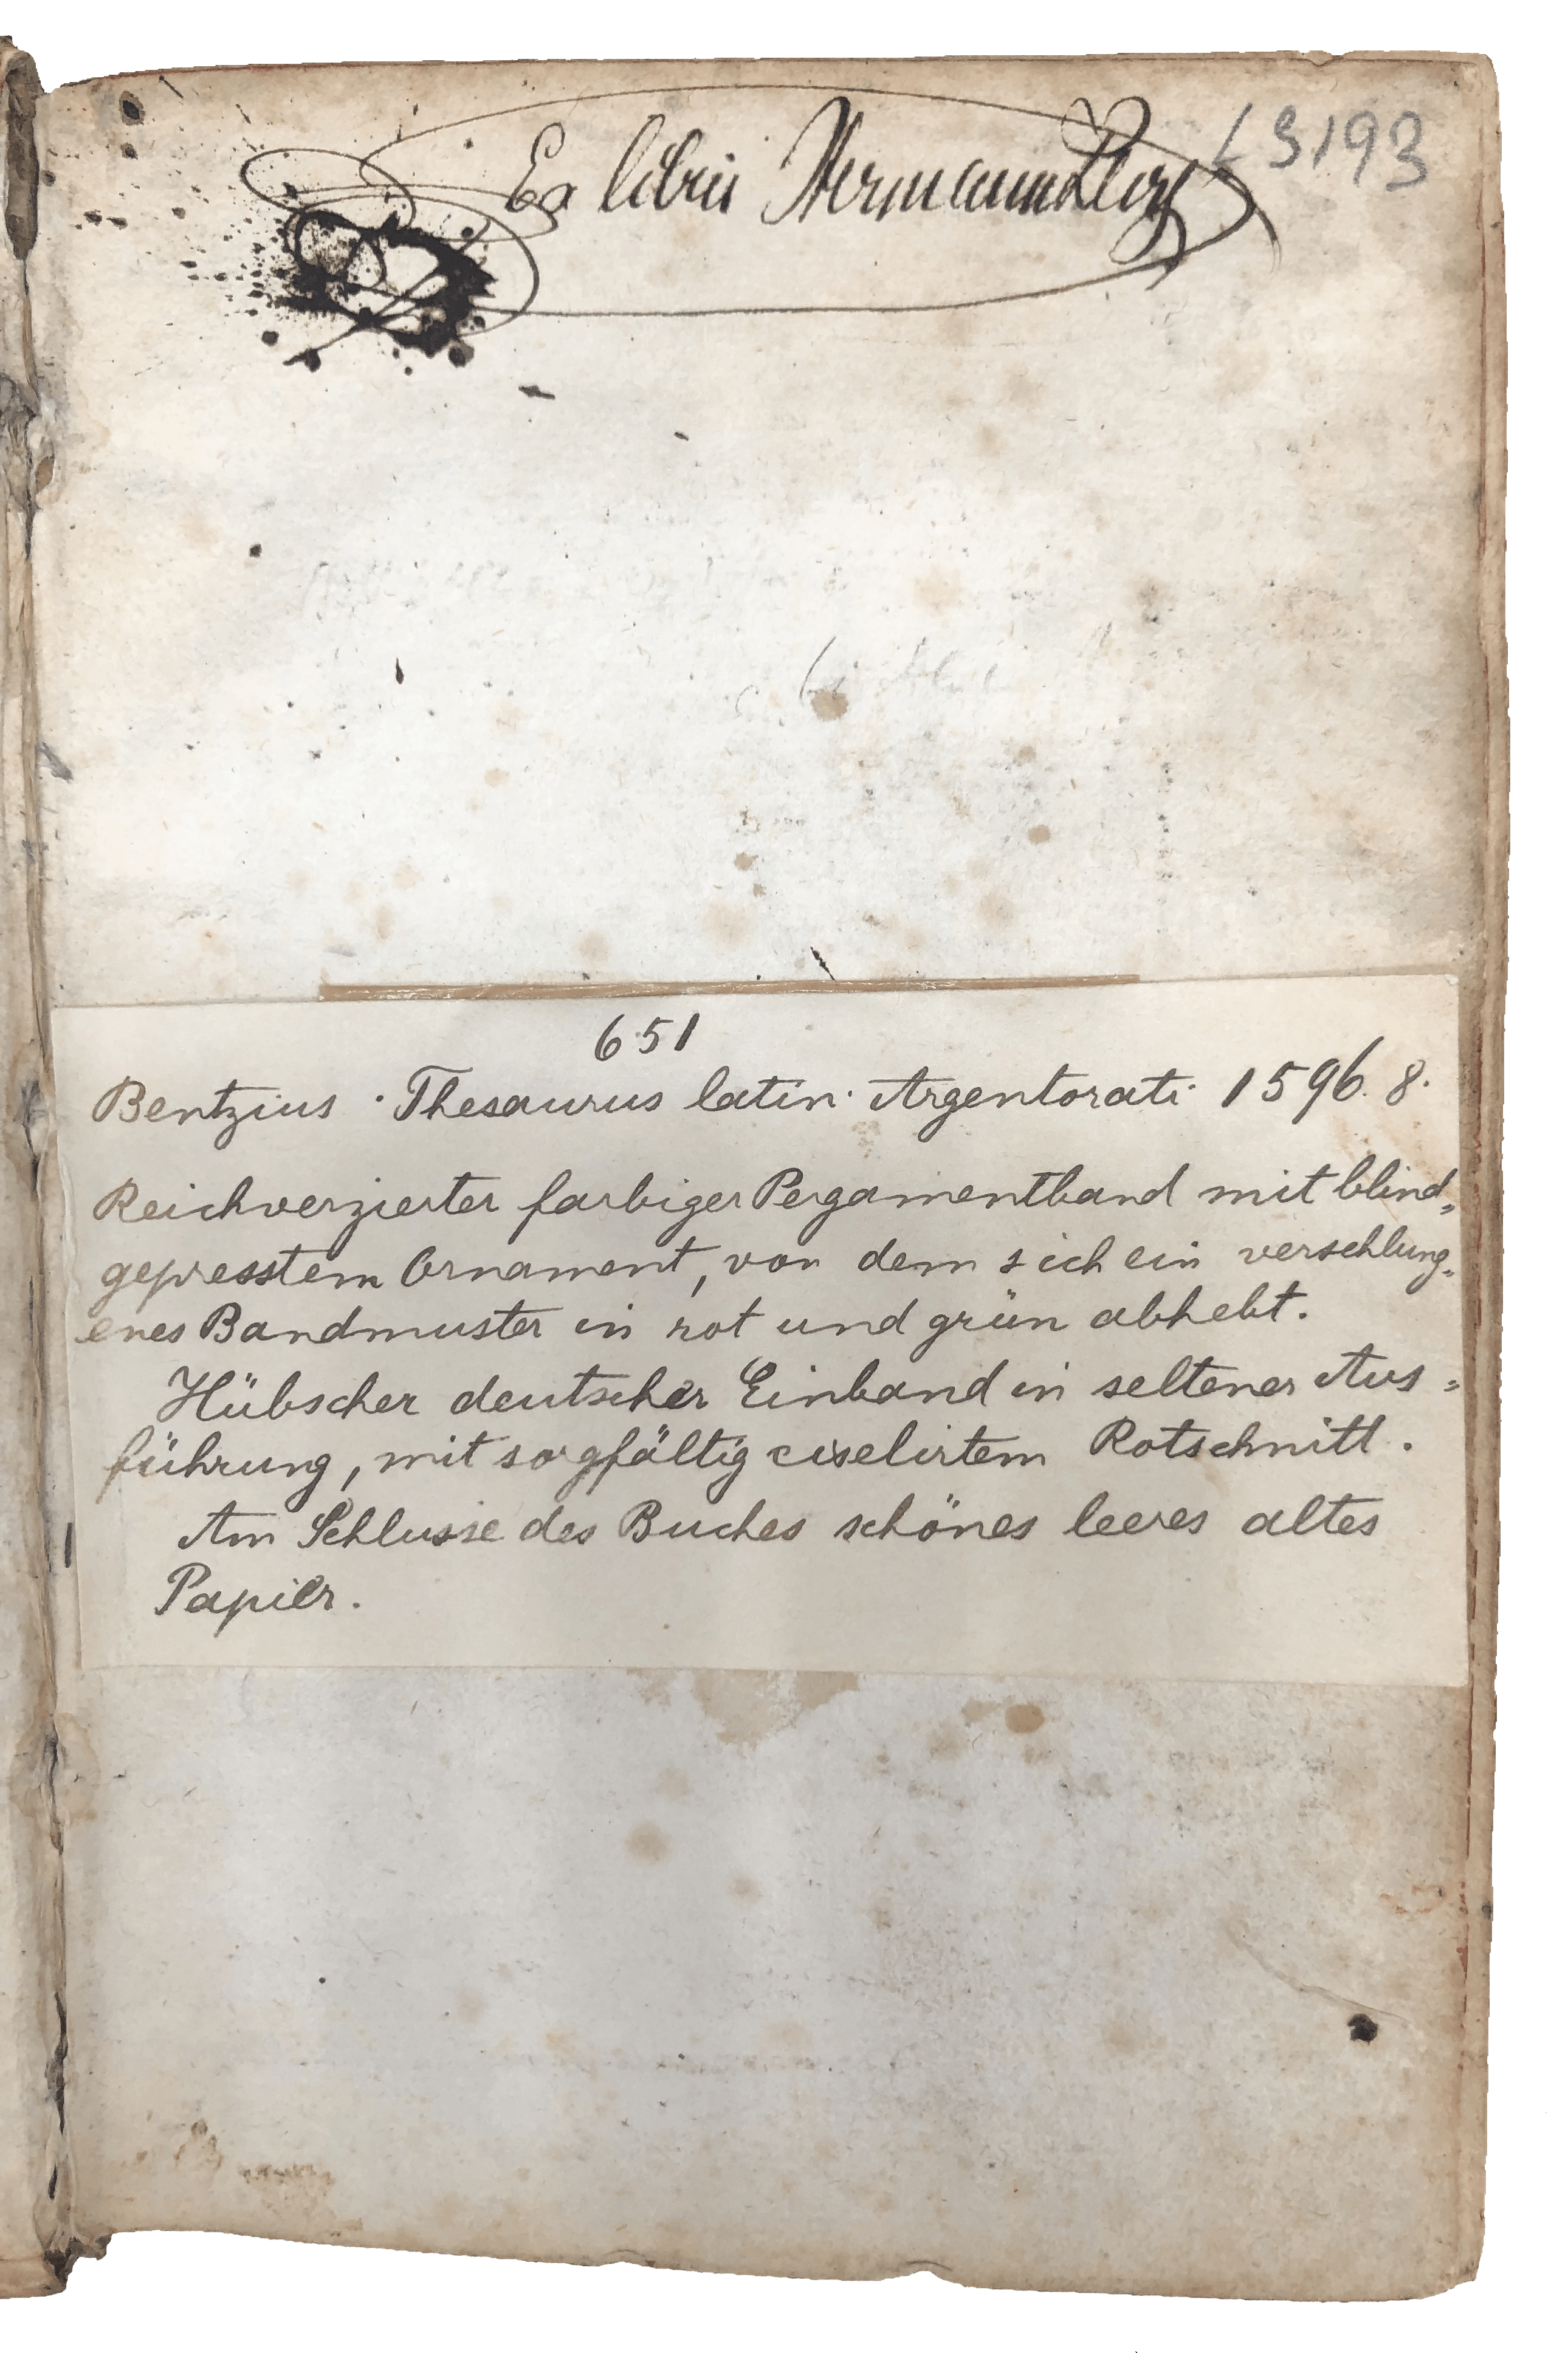 Ex libris Hermann
L 3193
651
Bentzius · Thesaurus latin· Argentorati 1596. 8.
Reichverzierter farbiger Pergamentband mit blind„
gepresstem Ornament, von dem sich ein verschlung„
enes Bandmuster in rot und grün abhebt.
Hübscher deutscher Einband in seltener Aus„
führung, mit sorgfältig ciselirtem Rotschnitt.
Am Schlusse des Buches schönes leeres altes
Papier.